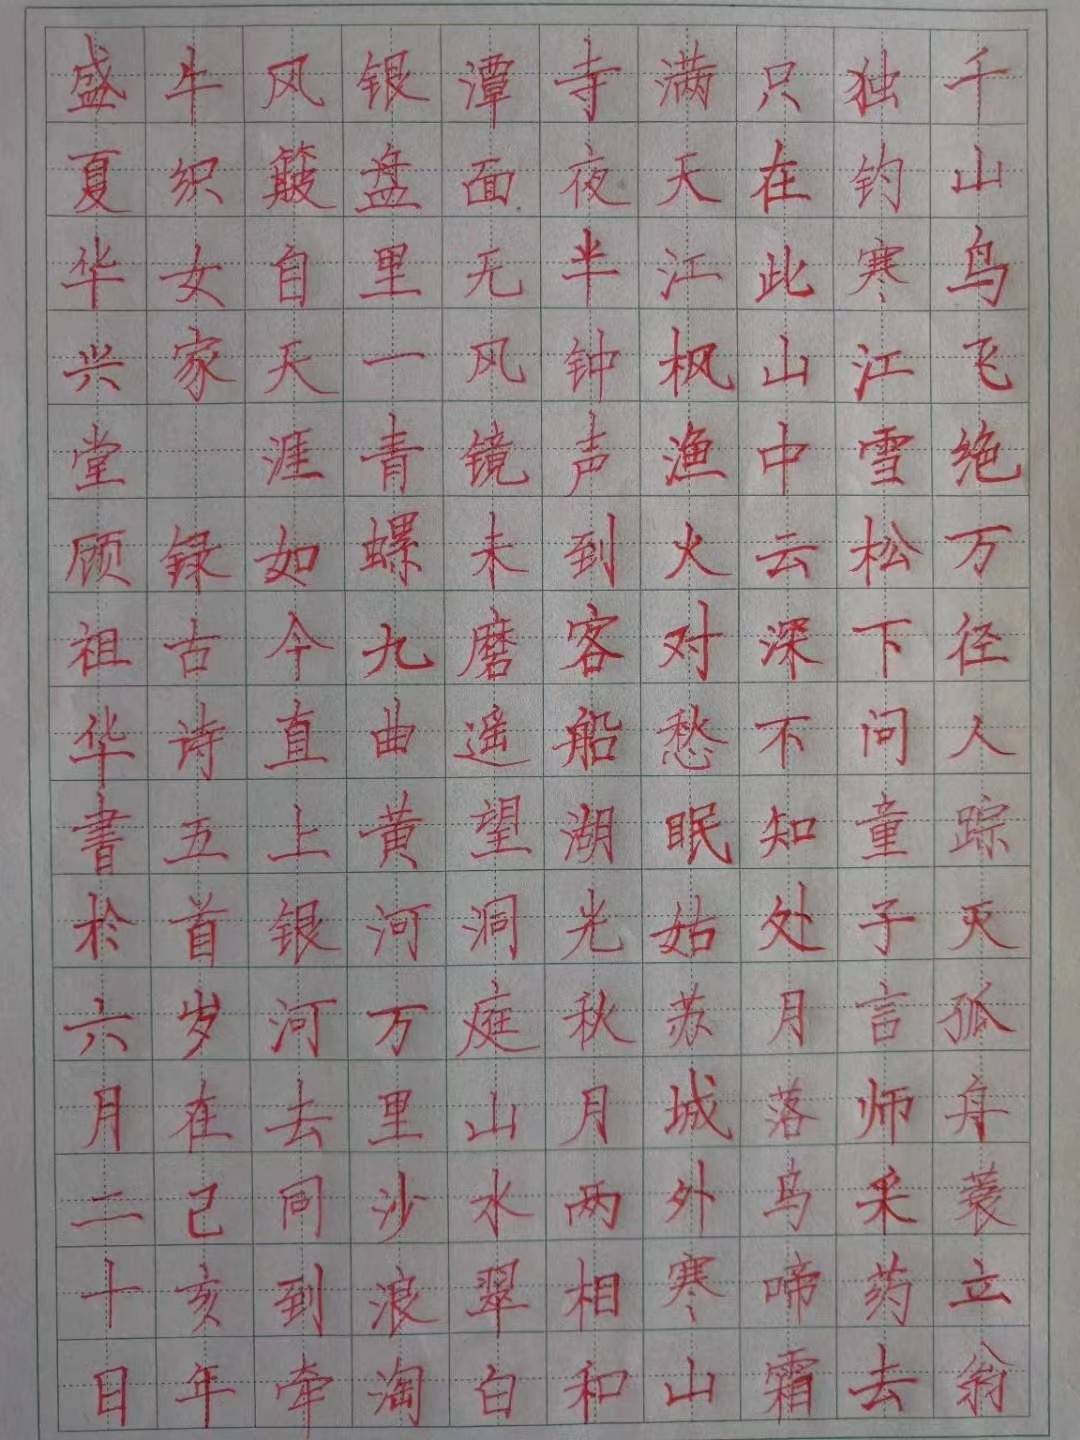 千山鸟飞绝万径人踪灭孤舟蓑立翁
独钓寒江雪松下问童子言师采药去
只在此山中云深不知处月落乌啼霜
满天江枫渔火对愁眠姑苏城外寒山
寺夜半钟声到客船湖光秋月两相和
潭面无风镜未磨遥望洞庭山水翠白
银盘里一青螺九曲黄河万里沙浪淘
风簸自天涯如今直上银河去同到牵
牛织女家 録古诗五首岁在己亥年
盛夏华兴堂顾祖华書於六月二十日